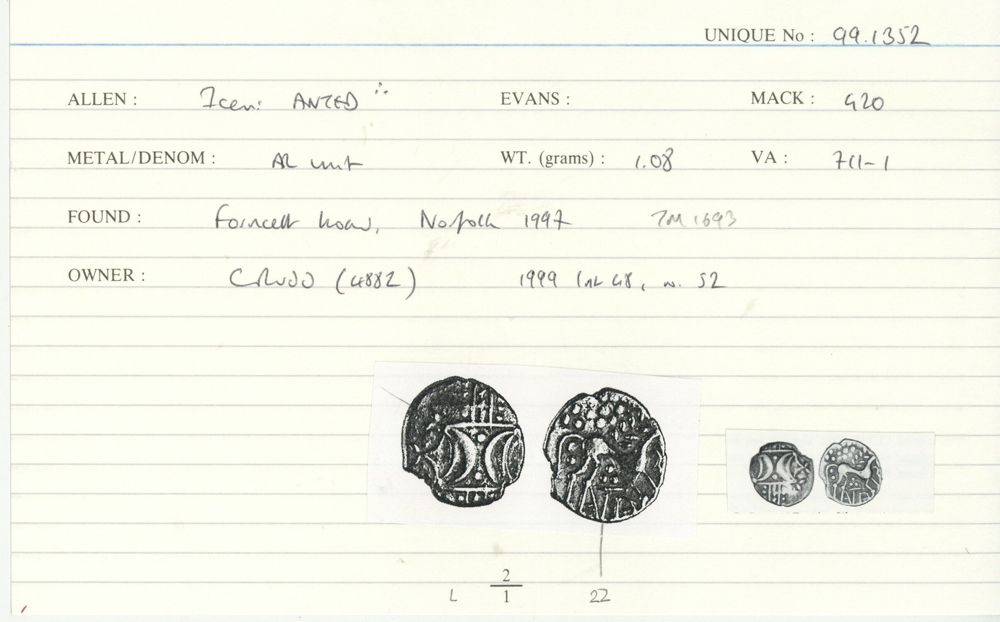 UNIQUE No : 99.1352
ALLEN : Iceni ANTED EVANS : MACK : 420
METAL/DENOM : AR unit WT. (grams) : 1.08 VA : 711-1
FOUND : Forncett hoard, Norfolk 1997 TM 1693
OWNER : CRUDD (4882) 1999 48, n. 52
2
L 1 22